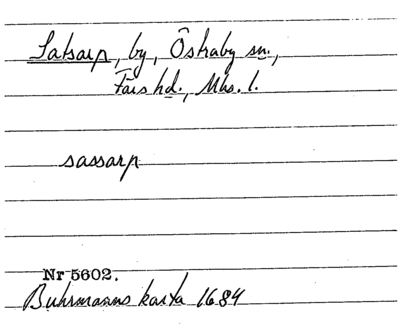 Satsarp, by, Östraby sn.,
Färs hd., Mhs. l.
sassarp
Nr 5602.
Buhrmanns karta 1684